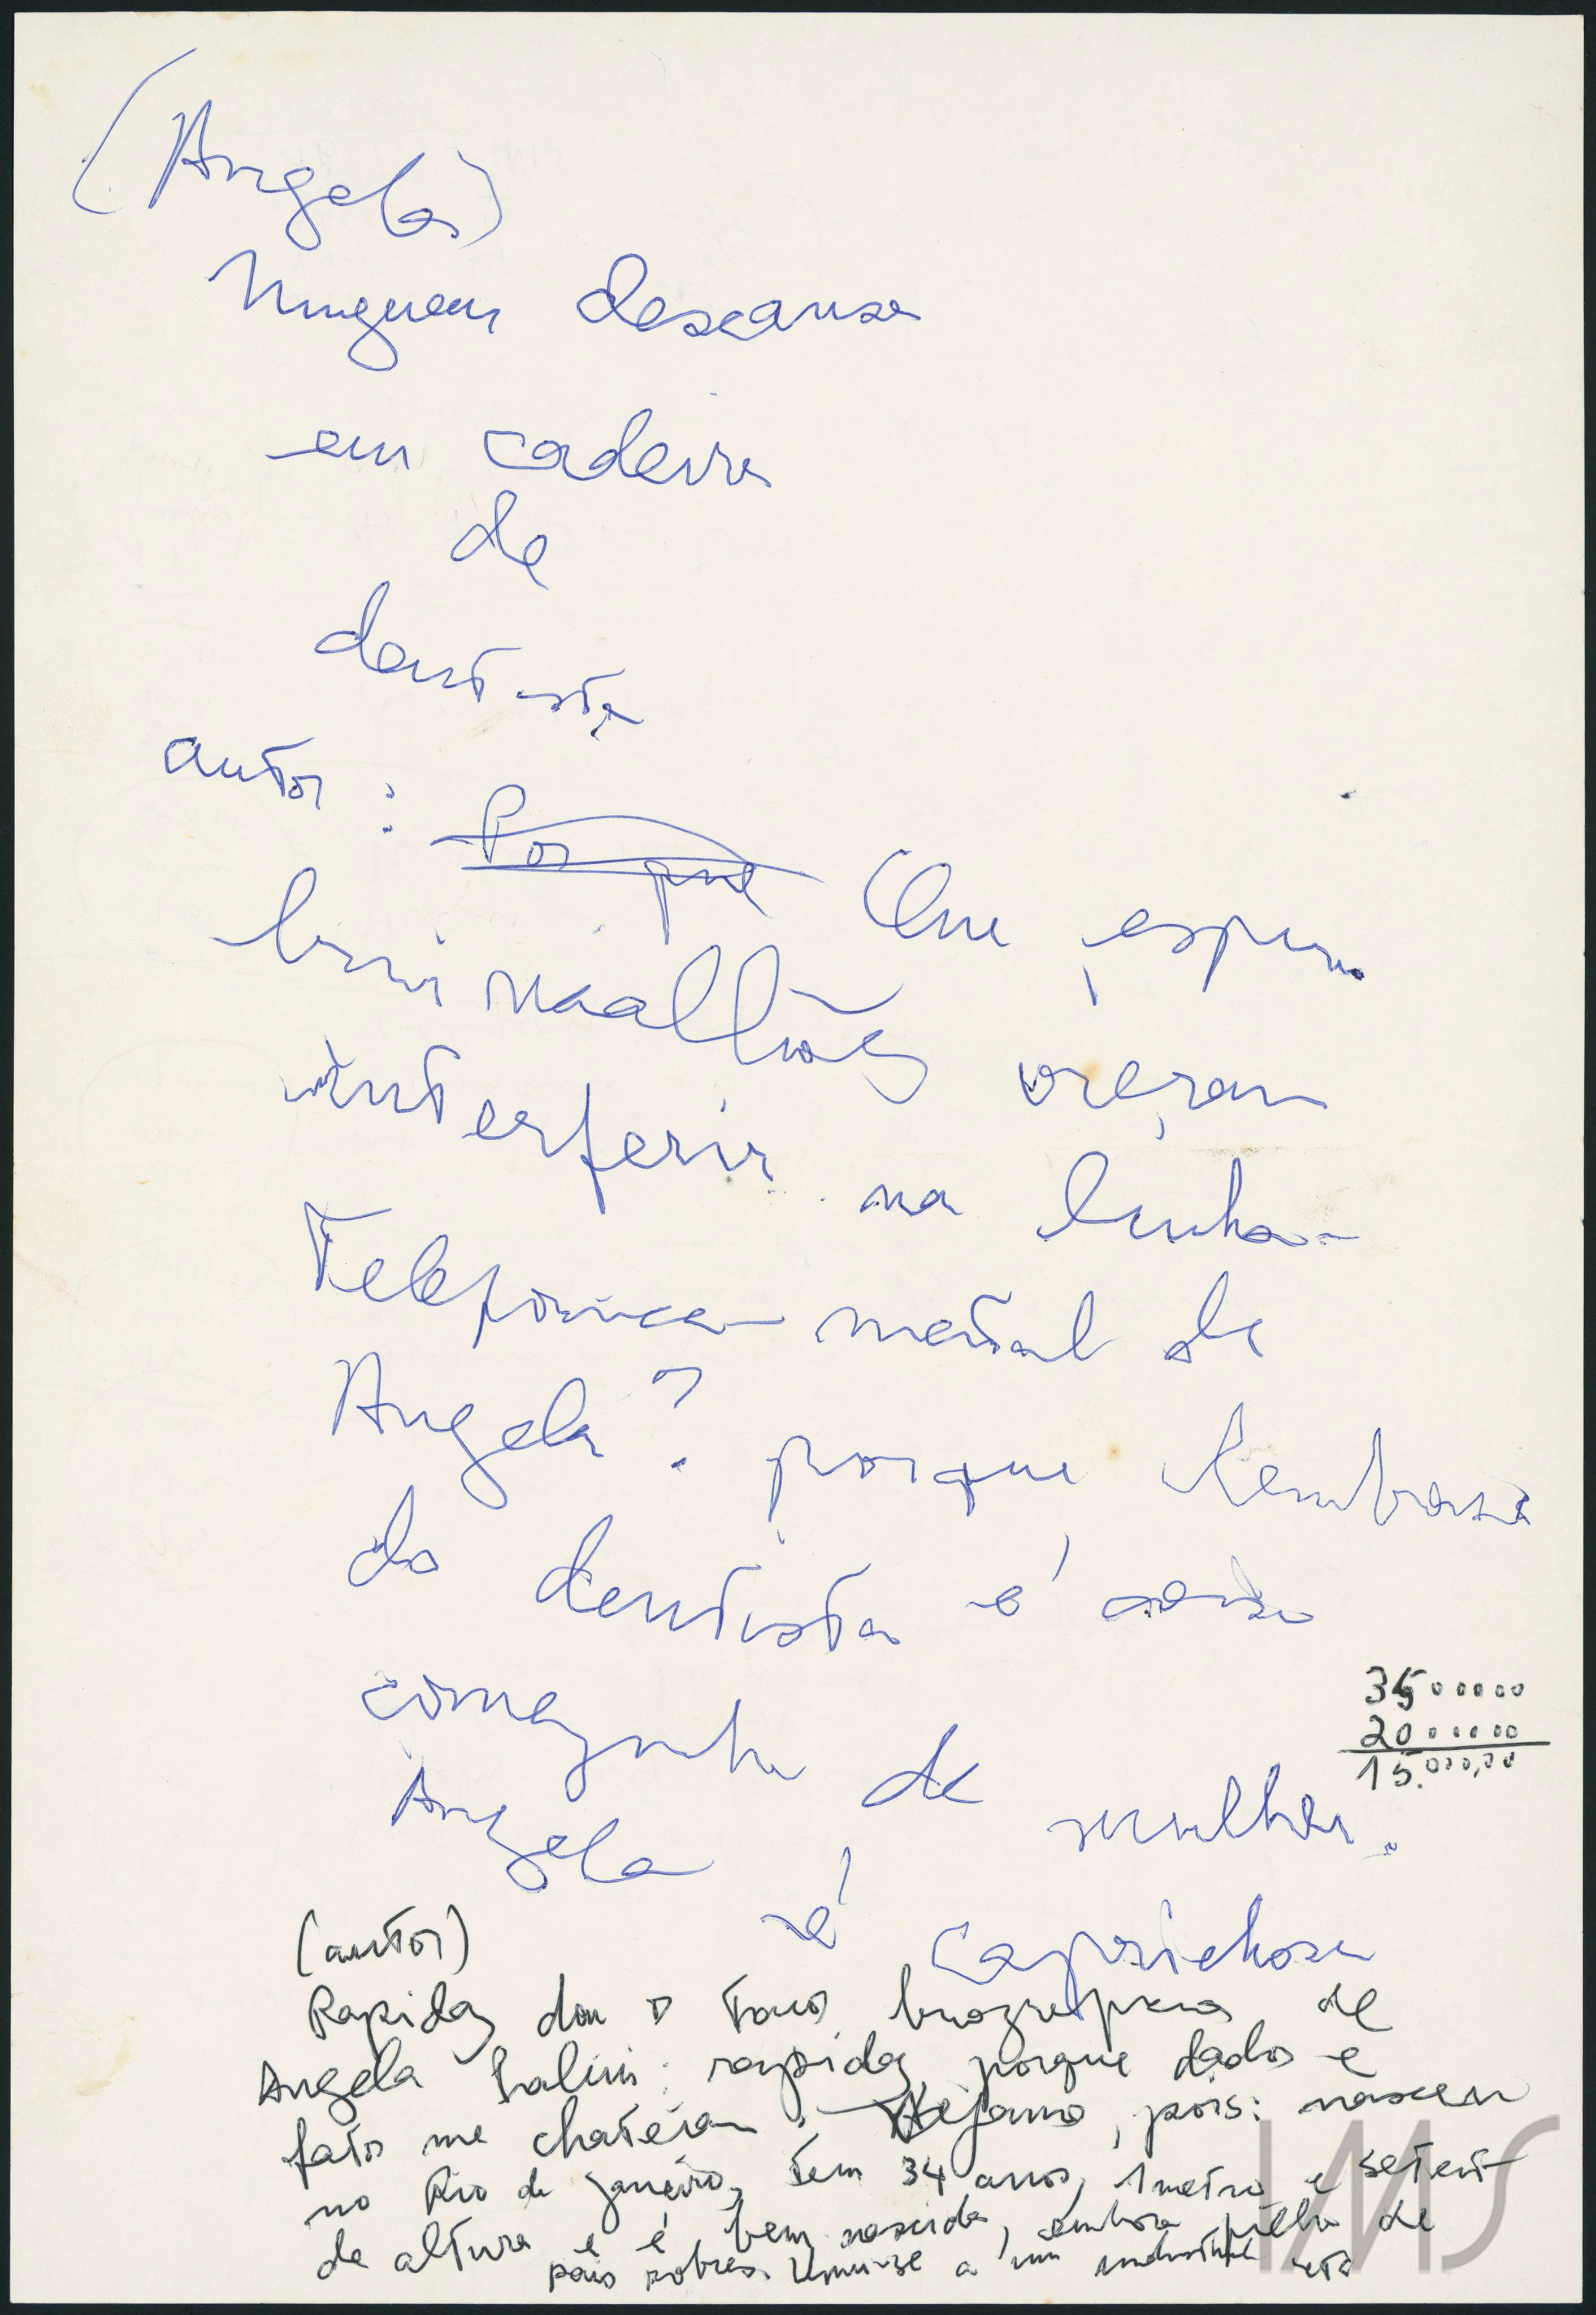 (Angela)
Ninguem descansa
em cadeira
de
dentista
autor: Por que Que espiri
bui maallhães vieram
interferir na linha
Telefonica mental de
Angela? porque lembrar-se
do dentista é coisa
comezinha de mulher.
Angela é caprichosa
35000000
20000000
15.000,00
(autor)
Rapidas dou os tracos biograficos de
Angela Pralini: rapidas, porque dados e
fatos me chateiam. Vejamos, pois: nasceu
no Rio de Janeiro, tem 34 anos, 1 metro e setent
de altura e é bem nascida, embora filha de
pais pobres. Uniu-se a um industrial etc